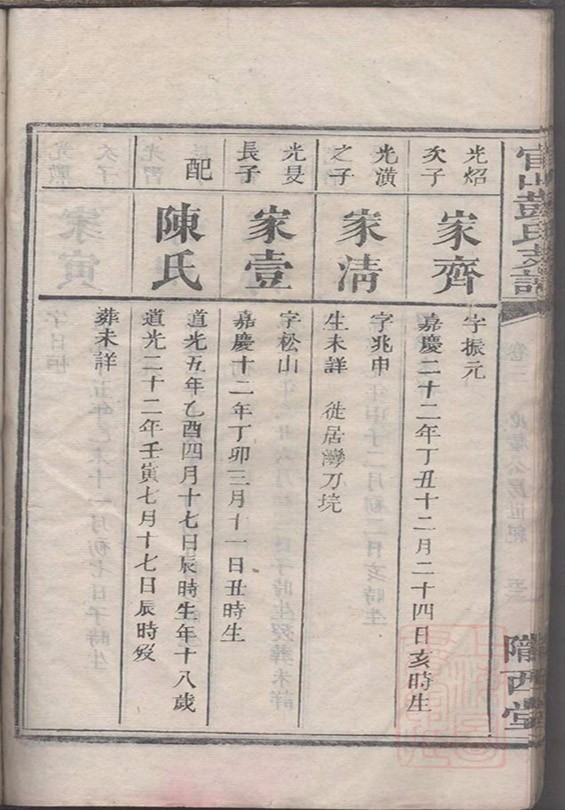 官山彭氏支譜
隴西堂
光炤
次子
家齊
字振元
嘉慶二十二年丁丑十二月二十四日亥時生
光潢
之子
家清
字兆申
生未詳 徙居灣刀坑
光旻
長子
家壹
字松山
嘉慶十二年丁卯三月十一日丑時生
配
陳氏
道光五年乙酉四月十七日辰時生年十八歲
道光二十二年壬寅七月十七日辰時歿
葬未詳